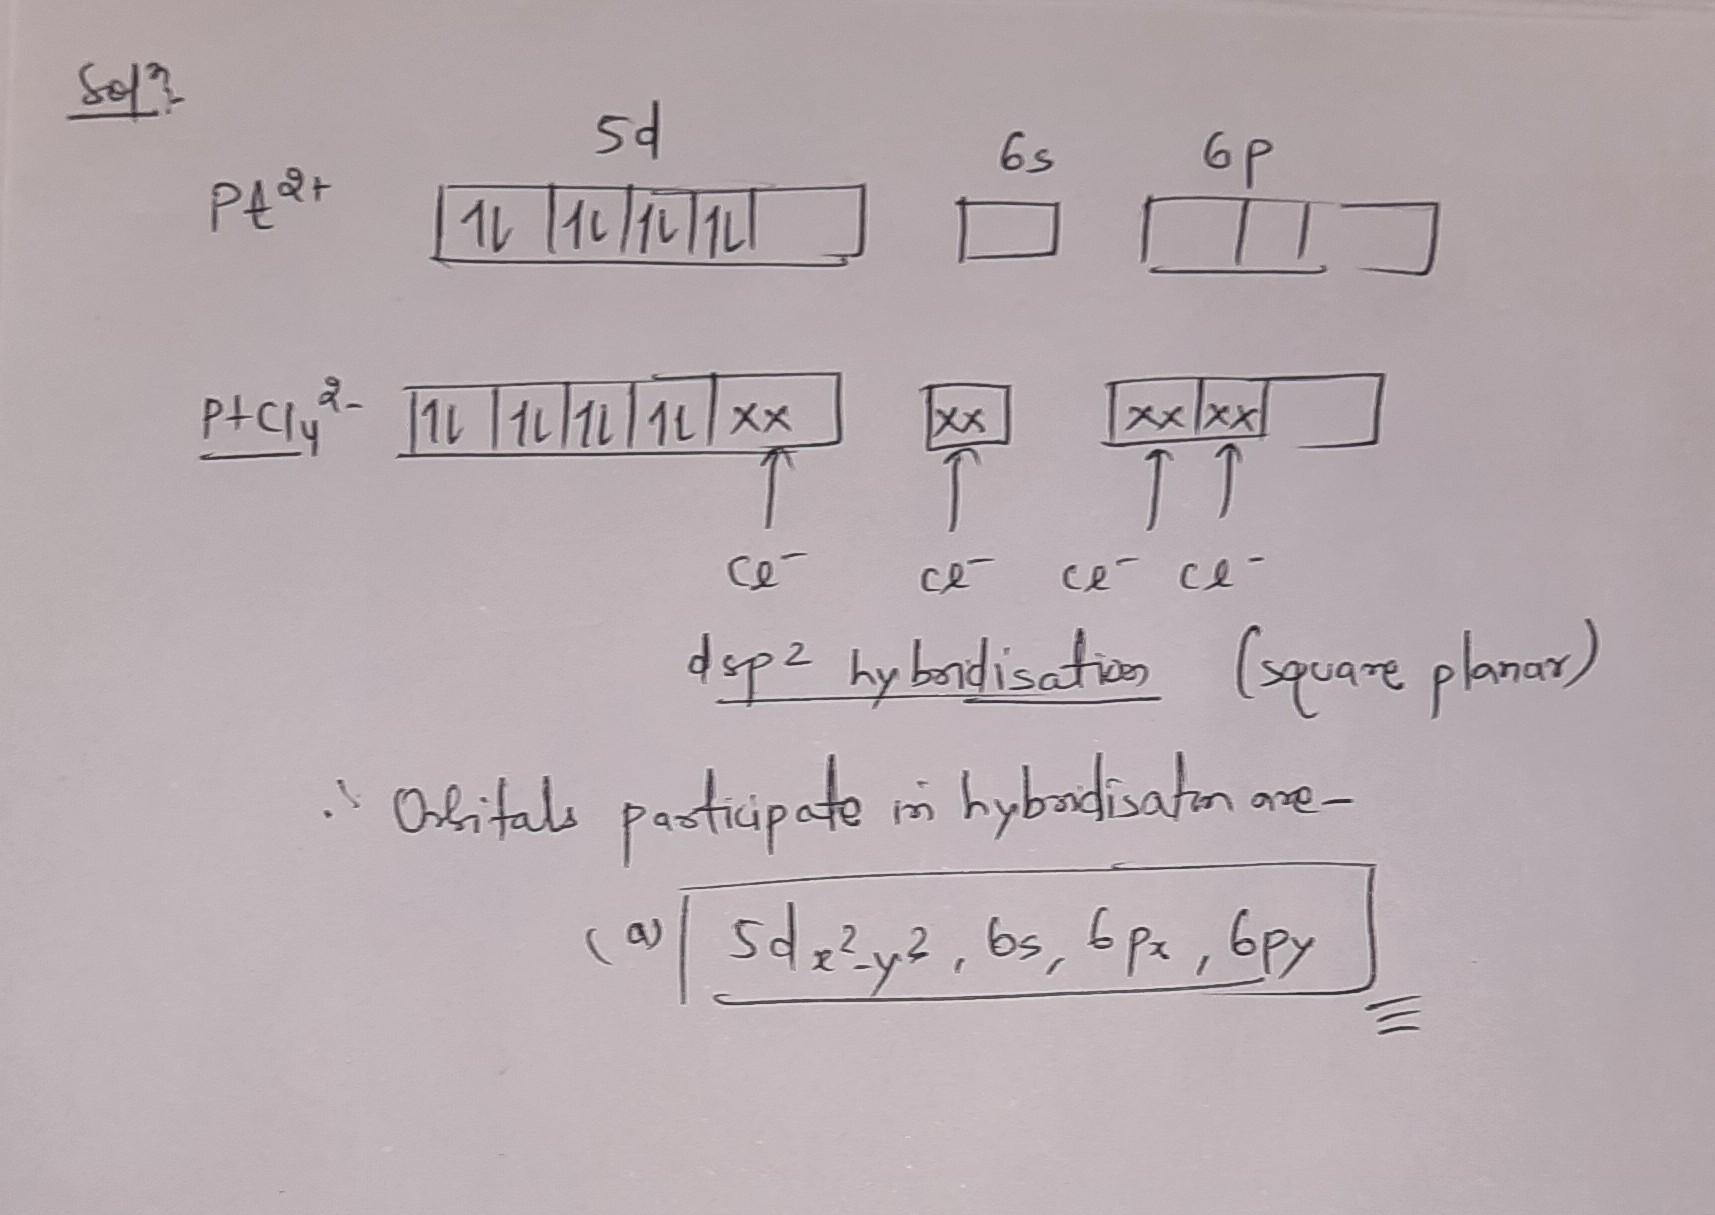 Solⁿ:
5d 6s 6p
Pt²⁺ 1l 1l 1l 1l
PtCl₄²⁻ 1l 1l 1l 1l xx xx xx xx
↑ ↑ ↑ ↑
Cl⁻ Cl⁻ Cl⁻ Cl⁻
dsp² hybridisation (square planar)
∴ Orbitals participate in hybridisatn are–
(a) 5dx²-y², 6s, 6px, 6py